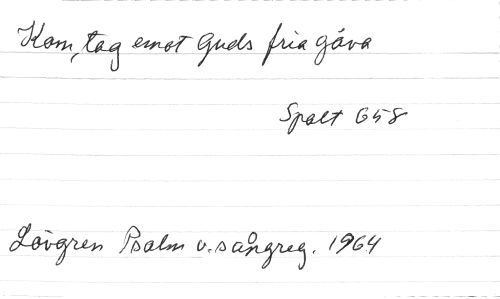 Kom, tag emot Guds fria gåva
Spalt 658
Lövgren Psalm o. sångreg. 1964